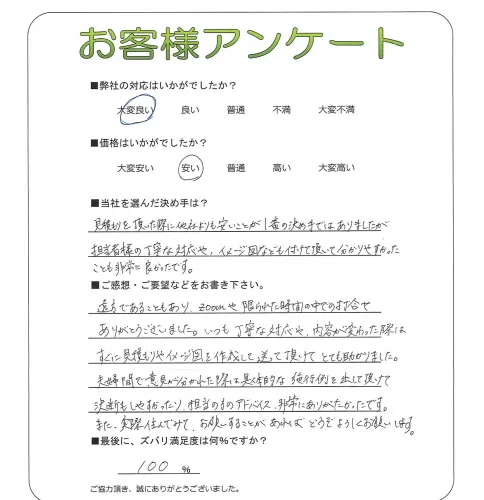 お客様アンケート
■弊社の対応はいかがでしたか？
大変良い 良い 普通 不満 大変不満
■価格はいかがでしたか？
大変安い 安い 普通 高い 大変高い
■当社を選んだ決め手は？
見積もりを頂いた際に他社よりも安いことが1番の決め手ではありましたが
担当者様の丁寧な対応や、イメージ図なども付けて頂いて分かりやすかった
ことも非常に良かったです。
■ご感想・ご要望などをお書き下さい。
遠方であることもあり、zoomや限られた時間の中での打合せ
ありがとうございました。いつも丁寧な対応や、内容が変わった際は
すぐに見積もりやイメージ図を作成して送って頂けてとても助かりました。
夫婦間で意見が分かれた際は具体的な施行例を出して頂けて
決断もしやすかったり、担当の方のアドバイス、非常にありがたかったです。
また、実際住んでみて、お願いすることがあればどうぞよろしくお願いします。
■最後に、ズバリ満足度は何％ですか？
100 ％
ご協力頂き、誠にありがとうございました。